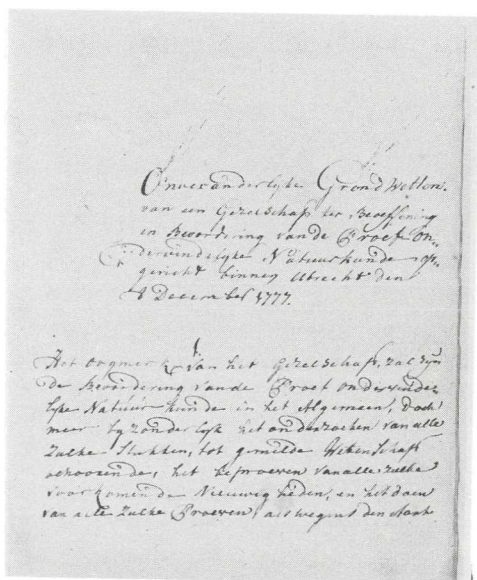 Onveranderlyke Grond Wetten.
van een Gezelschap ter Beoeffening
en Bevordering van de Proef On„
dervindelyke Natuurkunde op„
gericht binnen Utrecht den
8 December 1777.
Het oogmerk van het Gezelschap, zal zyn
de Bevordering van de Proef ondervinde„
lyke Natuur kunde in het Algemeen, doch
meer byzonder lyk het onderzoeken van alle
zulke Stukken, tot gemelde Wetenschap
behoorende, het beproeven van alle zulke
voorkomende Nieuwigheden, en het doen
van alle zulke Proeven, als wegens den